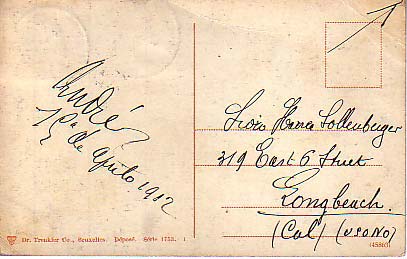 André
1ª de aprilo 1912
Sroro Hanco Sollenberger
319 East 6 Street
Longbeach
(Cal) (USONO)
Dr. Trenkler Co., Bruxelles. Déposé. Série 1753. 1
(45863)